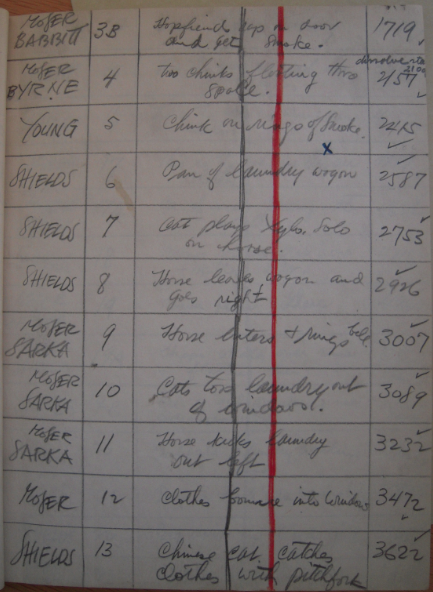 MOSER 3B Hopfiends rap on door 1719
BABBITT and get smoke.
MOSER 4 two chinks floating thro dissolve
BYRNE smoke. 2157
YOUNG 5 Chink on rings of smoke. 2245
x
SHIELDS 6 Pan of laundry wagon 2587
SHIELDS 7 Cat plays Xylo. Solo 2753
on horse.
SHIELDS 8 Horse leaves wagon and 2926
goes right
MOSER 9 Horse enters & rings bell 3007
SARKA
MOSER 10 Cats toss laundry out 3089
SARKA of windows.
MOSER 11 Horse kicks laundry 3232
SARKA out left
MOSER 12 Clothes bounce into window 3472
SHIELDS 13 Chinese cat catches 3622
clothes with pitchfork